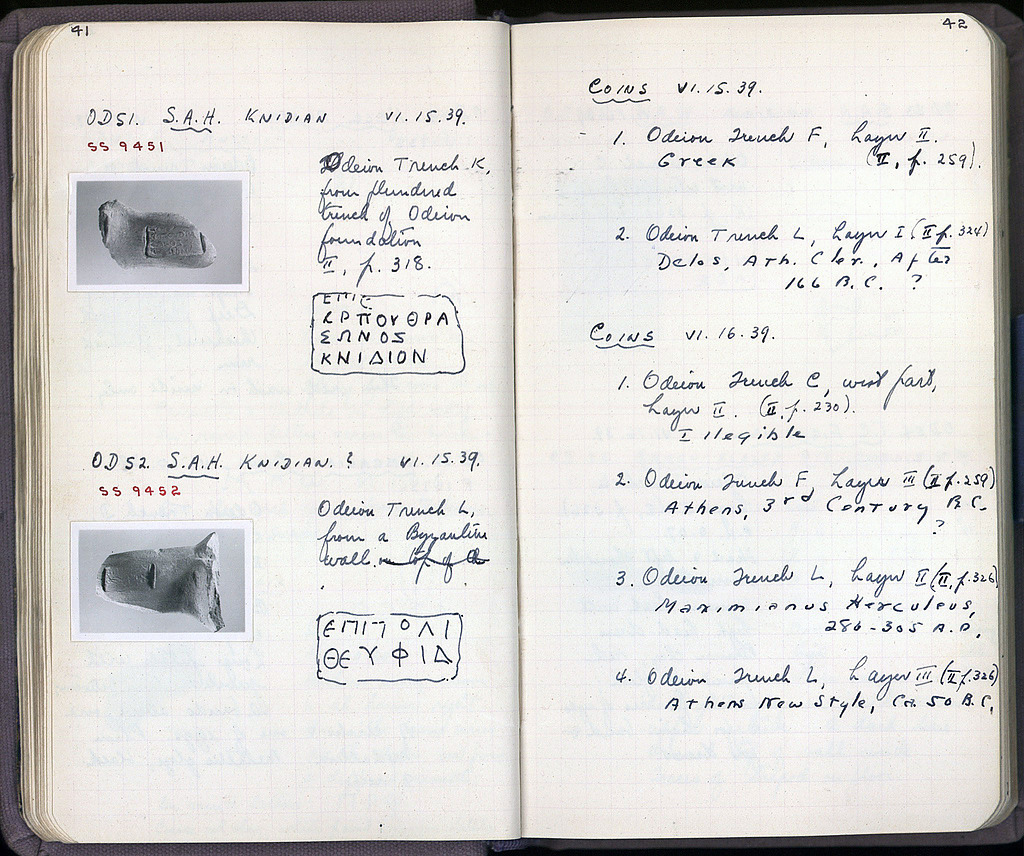 41
OD51. S.A.H. KNIDIAN VI.15.39.
SS 9451
Odeion Trench K,
from plundered
trench of Odeion
foundation
II, p. 318.
ΕΠΙΣ
ΑΡΠΟΥΘΡΑ
ΣΩΝΟΣ
ΚΝΙΔΙΟΝ
OD52. S.A.H. KNIDIAN.? VI.15.39.
SS 9452
Odeion Trench L,
from a Byzantine
wall. on top of a
ΕΠΙΠΟΛΙ
ΘΕΥΦΙΔ
42
Coins VI.15.39.
1. Odeion Trench F, Layer II.
Greek (II, p. 259).
2. Odeion Trench L, Layer I (II p. 324)
Delos, Ath. Cler., After
166 B.C. ?
Coins VI.16.39.
1. Odeion Trench C, west part,
Layer II. (II, p. 230).
Illegible
2. Odeion Trench F, Layer III (II p. 259)
Athens, 3rd Century B.C.
?
3. Odeion Trench L, Layer II (II, p. 326)
Maximianus Herculeus,
286-305 A.D.
4. Odeion Trench L, Layer III (II p. 326)
Athens New Style, Ca. 50 B.C.